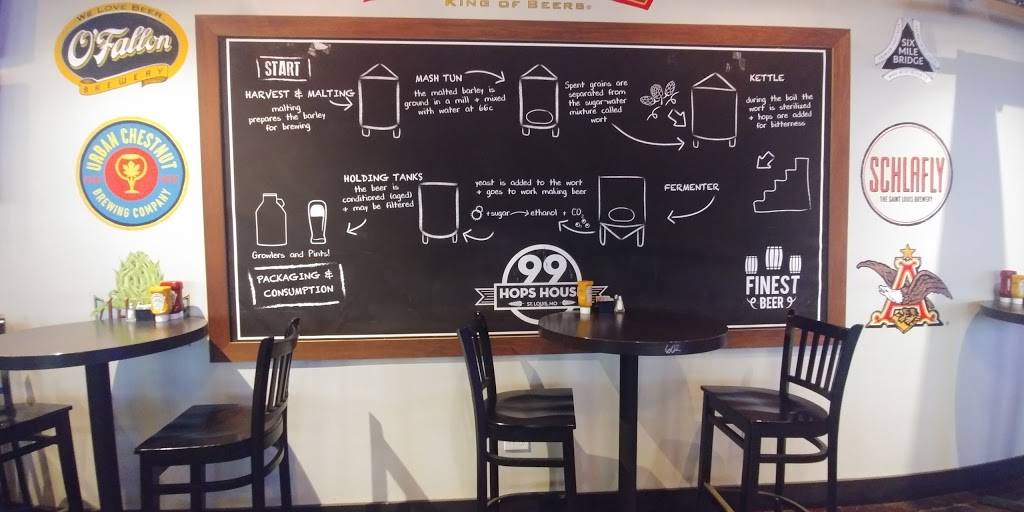 KING OF BEERS®
WE LOVE BEER
O'Fallon
BREWERY
SIX
MILE
BRIDGE
URBAN CHESTNUT
BREWING COMPANY
SCHLAFLY
THE SAINT LOUIS BREWERY
START
HARVEST & MALTING
malting
prepares the barley
for brewing
MASH TUN
the malted barley is
ground in a mill + mixed
with water at 66c
Spent grains are
separated from
the sugar-water
mixture called
wort
KETTLE
during the boil the
wort is sterilized
+ hops are added
for bitterness
FERMENTER
yeast is added to the wort
+ goes to work making beer
+sugar → ethanol + CO2
HOLDING TANKS
the beer is
conditioned (aged)
+ may be filtered
Growlers and Pints!
PACKAGING &
CONSUMPTION
99
HOPS HOUSE
ST. LOUIS, MO
FINEST
BEER
A
602